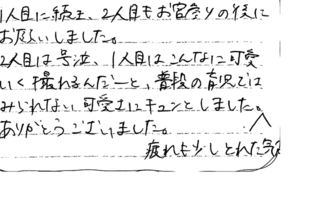 1人目に続き、2人目もお宮参りの後に
お願いしました。
2人目は号泣、1人目はこんなに可愛
いく撮れるんだーと、普段の育児では
みられない可愛さにキュンとしました。
ありがとうございました。
疲れも少しとれた気